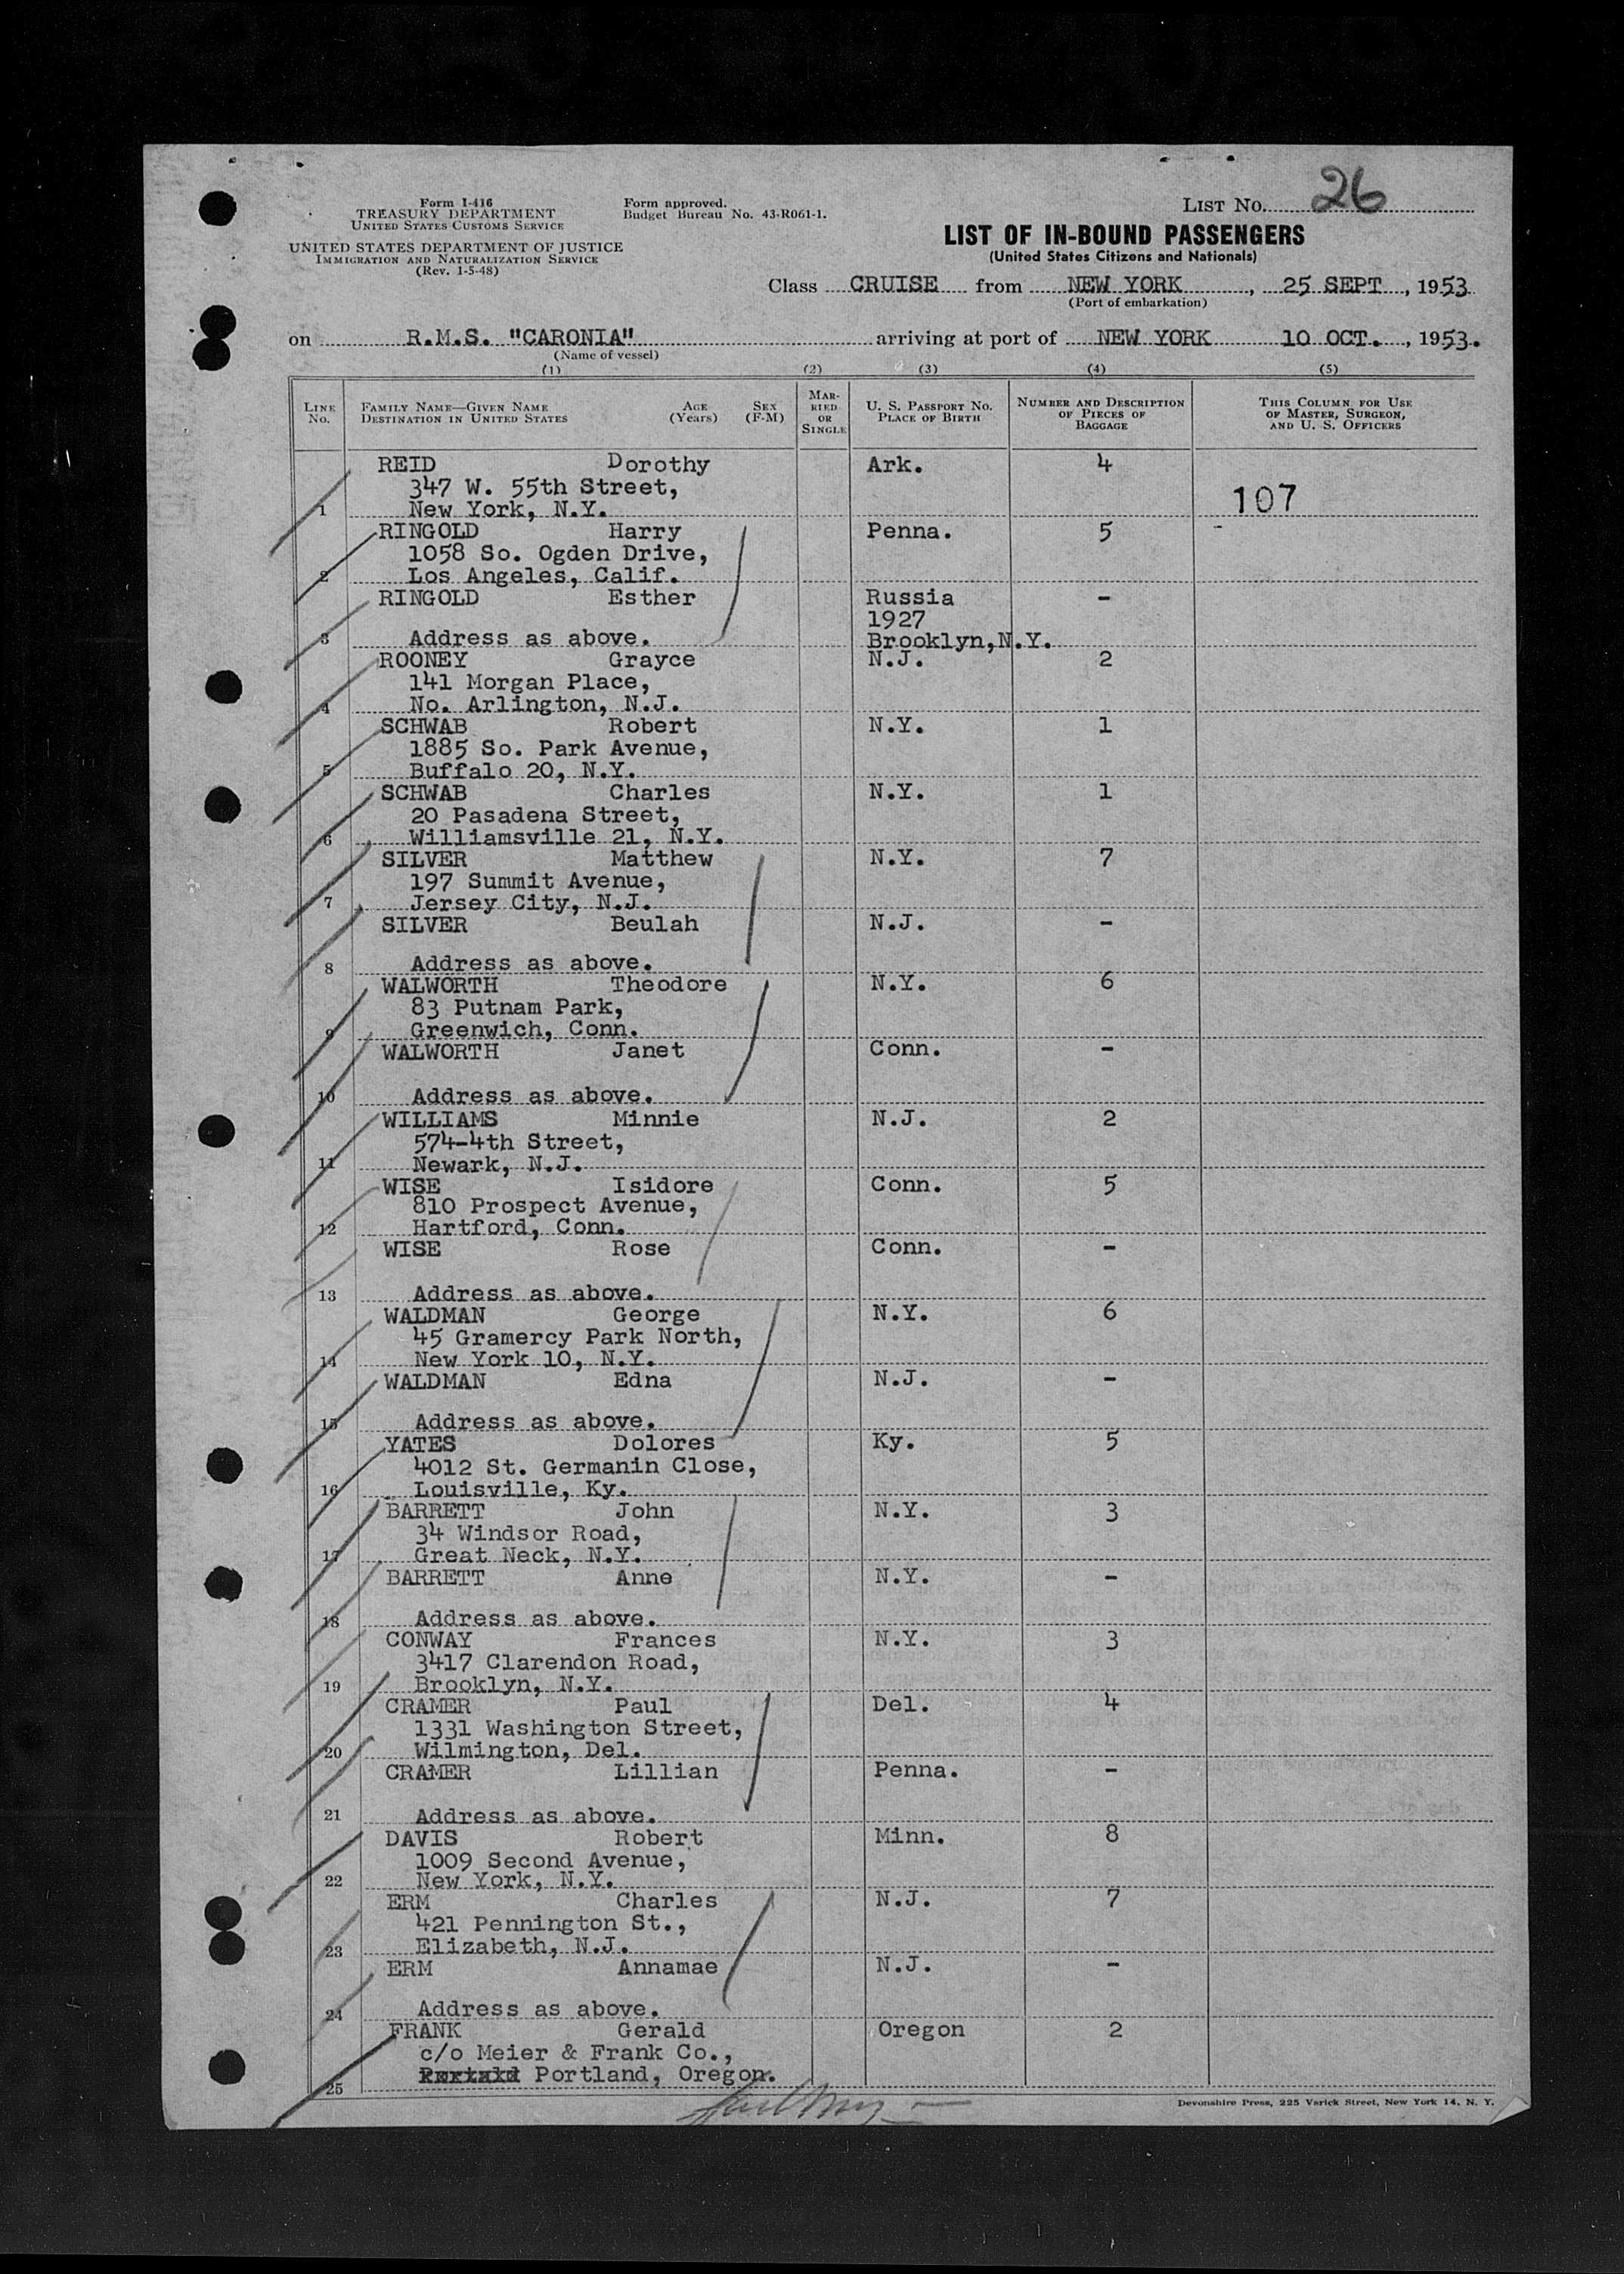 Form I-416
TREASURY DEPARTMENT
UNITED STATES CUSTOMS SERVICE
UNITED STATES DEPARTMENT OF JUSTICE
IMMIGRATION AND NATURALIZATION SERVICE
(Rev. 1-5-48)
Form approved.
Budget Bureau No. 43-R061-1.
LIST NO. 26
LIST OF IN-BOUND PASSENGERS
(United States Citizens and Nationals)
Class CRUISE from NEW YORK, 25 SEPT, 1953
(Port of embarkation)
on R.M.S. "CARONIA" arriving at port of NEW YORK 10 OCT., 1953.
(Name of vessel)
(1) (2) (3) (4) (5)
LINE NO. FAMILY NAME—GIVEN NAME DESTINATION IN UNITED STATES AGE (Years) SEX (F-M) MARRIED OR SINGLE U. S. PASSPORT NO. PLACE OF BIRTH NUMBER AND DESCRIPTION OF PIECES OF BAGGAGE THIS COLUMN FOR USE OF MASTER, SURGEON, AND U. S. OFFICERS
REID Dorothy Ark. 4
347 W. 55th Street,
107
1 New York, N.Y.
RINGOLD Harry Penna. 5
1058 So. Ogden Drive,
2 Los Angeles, Calif.
RINGOLD Esther Russia -
1927
3 Address as above. Brooklyn,N.Y.
ROONEY Grayce N.J. 2
141 Morgan Place,
4 No. Arlington, N.J.
SCHWAB Robert N.Y. 1
1885 So. Park Avenue,
5 Buffalo 20, N.Y.
SCHWAB Charles N.Y. 1
20 Pasadena Street,
6 Williamsville 21, N.Y.
SILVER Matthew N.Y. 7
197 Summit Avenue,
7 Jersey City, N.J.
SILVER Beulah N.J. -
8 Address as above.
WALWORTH Theodore N.Y. 6
83 Putnam Park,
9 Greenwich, Conn.
WALWORTH Janet Conn. -
10 Address as above.
WILLIAMS Minnie N.J. 2
574-4th Street,
11 Newark, N.J.
WISE Isidore Conn. 5
810 Prospect Avenue,
12 Hartford, Conn.
WISE Rose Conn. -
13 Address as above.
WALDMAN George N.Y. 6
45 Gramercy Park North,
14 New York 10, N.Y.
WALDMAN Edna N.J. -
15 Address as above.
YATES Dolores Ky. 5
4012 St. Germanin Close,
16 Louisville, Ky.
BARRETT John N.Y. 3
34 Windsor Road,
17 Great Neck, N.Y.
BARRETT Anne N.Y. -
18 Address as above.
CONWAY Frances N.Y. 3
3417 Clarendon Road,
19 Brooklyn, N.Y.
CRAMER Paul Del. 4
1331 Washington Street,
20 Wilmington, Del.
CRAMER Lillian Penna. -
21 Address as above.
DAVIS Robert Minn. 8
1009 Second Avenue,
22 New York, N.Y.
ERM Charles N.J. 7
421 Pennington St.,
23 Elizabeth, N.J.
ERM Annamae N.J. -
24 Address as above.
FRANK Gerald Oregon 2
c/o Meier & Frank Co.,
25 Portland, Oregon.
Devonshire Press, 225 Varick Street, New York 14, N. Y.